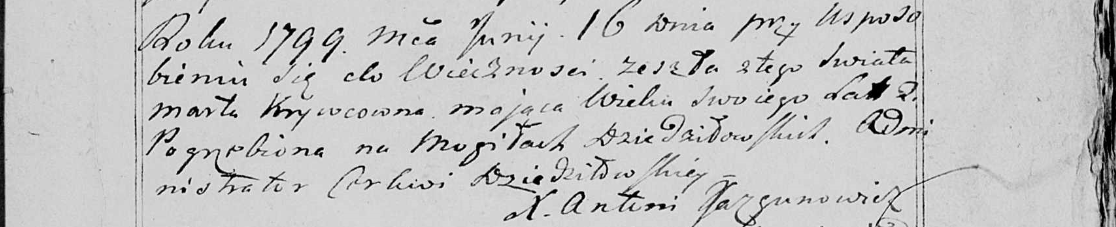 Roku 1799. Mca Junij. 16 dnia przy Usposo
bieniu się do Wieczności. zeszła z tego świata
marta Krywcowna. mająca Wieku swoiego Lat 2.
Pogrzebiona na Mogiłach Dziedziłowskich. Admi
nistrator Cerkwi Dziedziłowskiey
X. Antoni Jazgunowicz